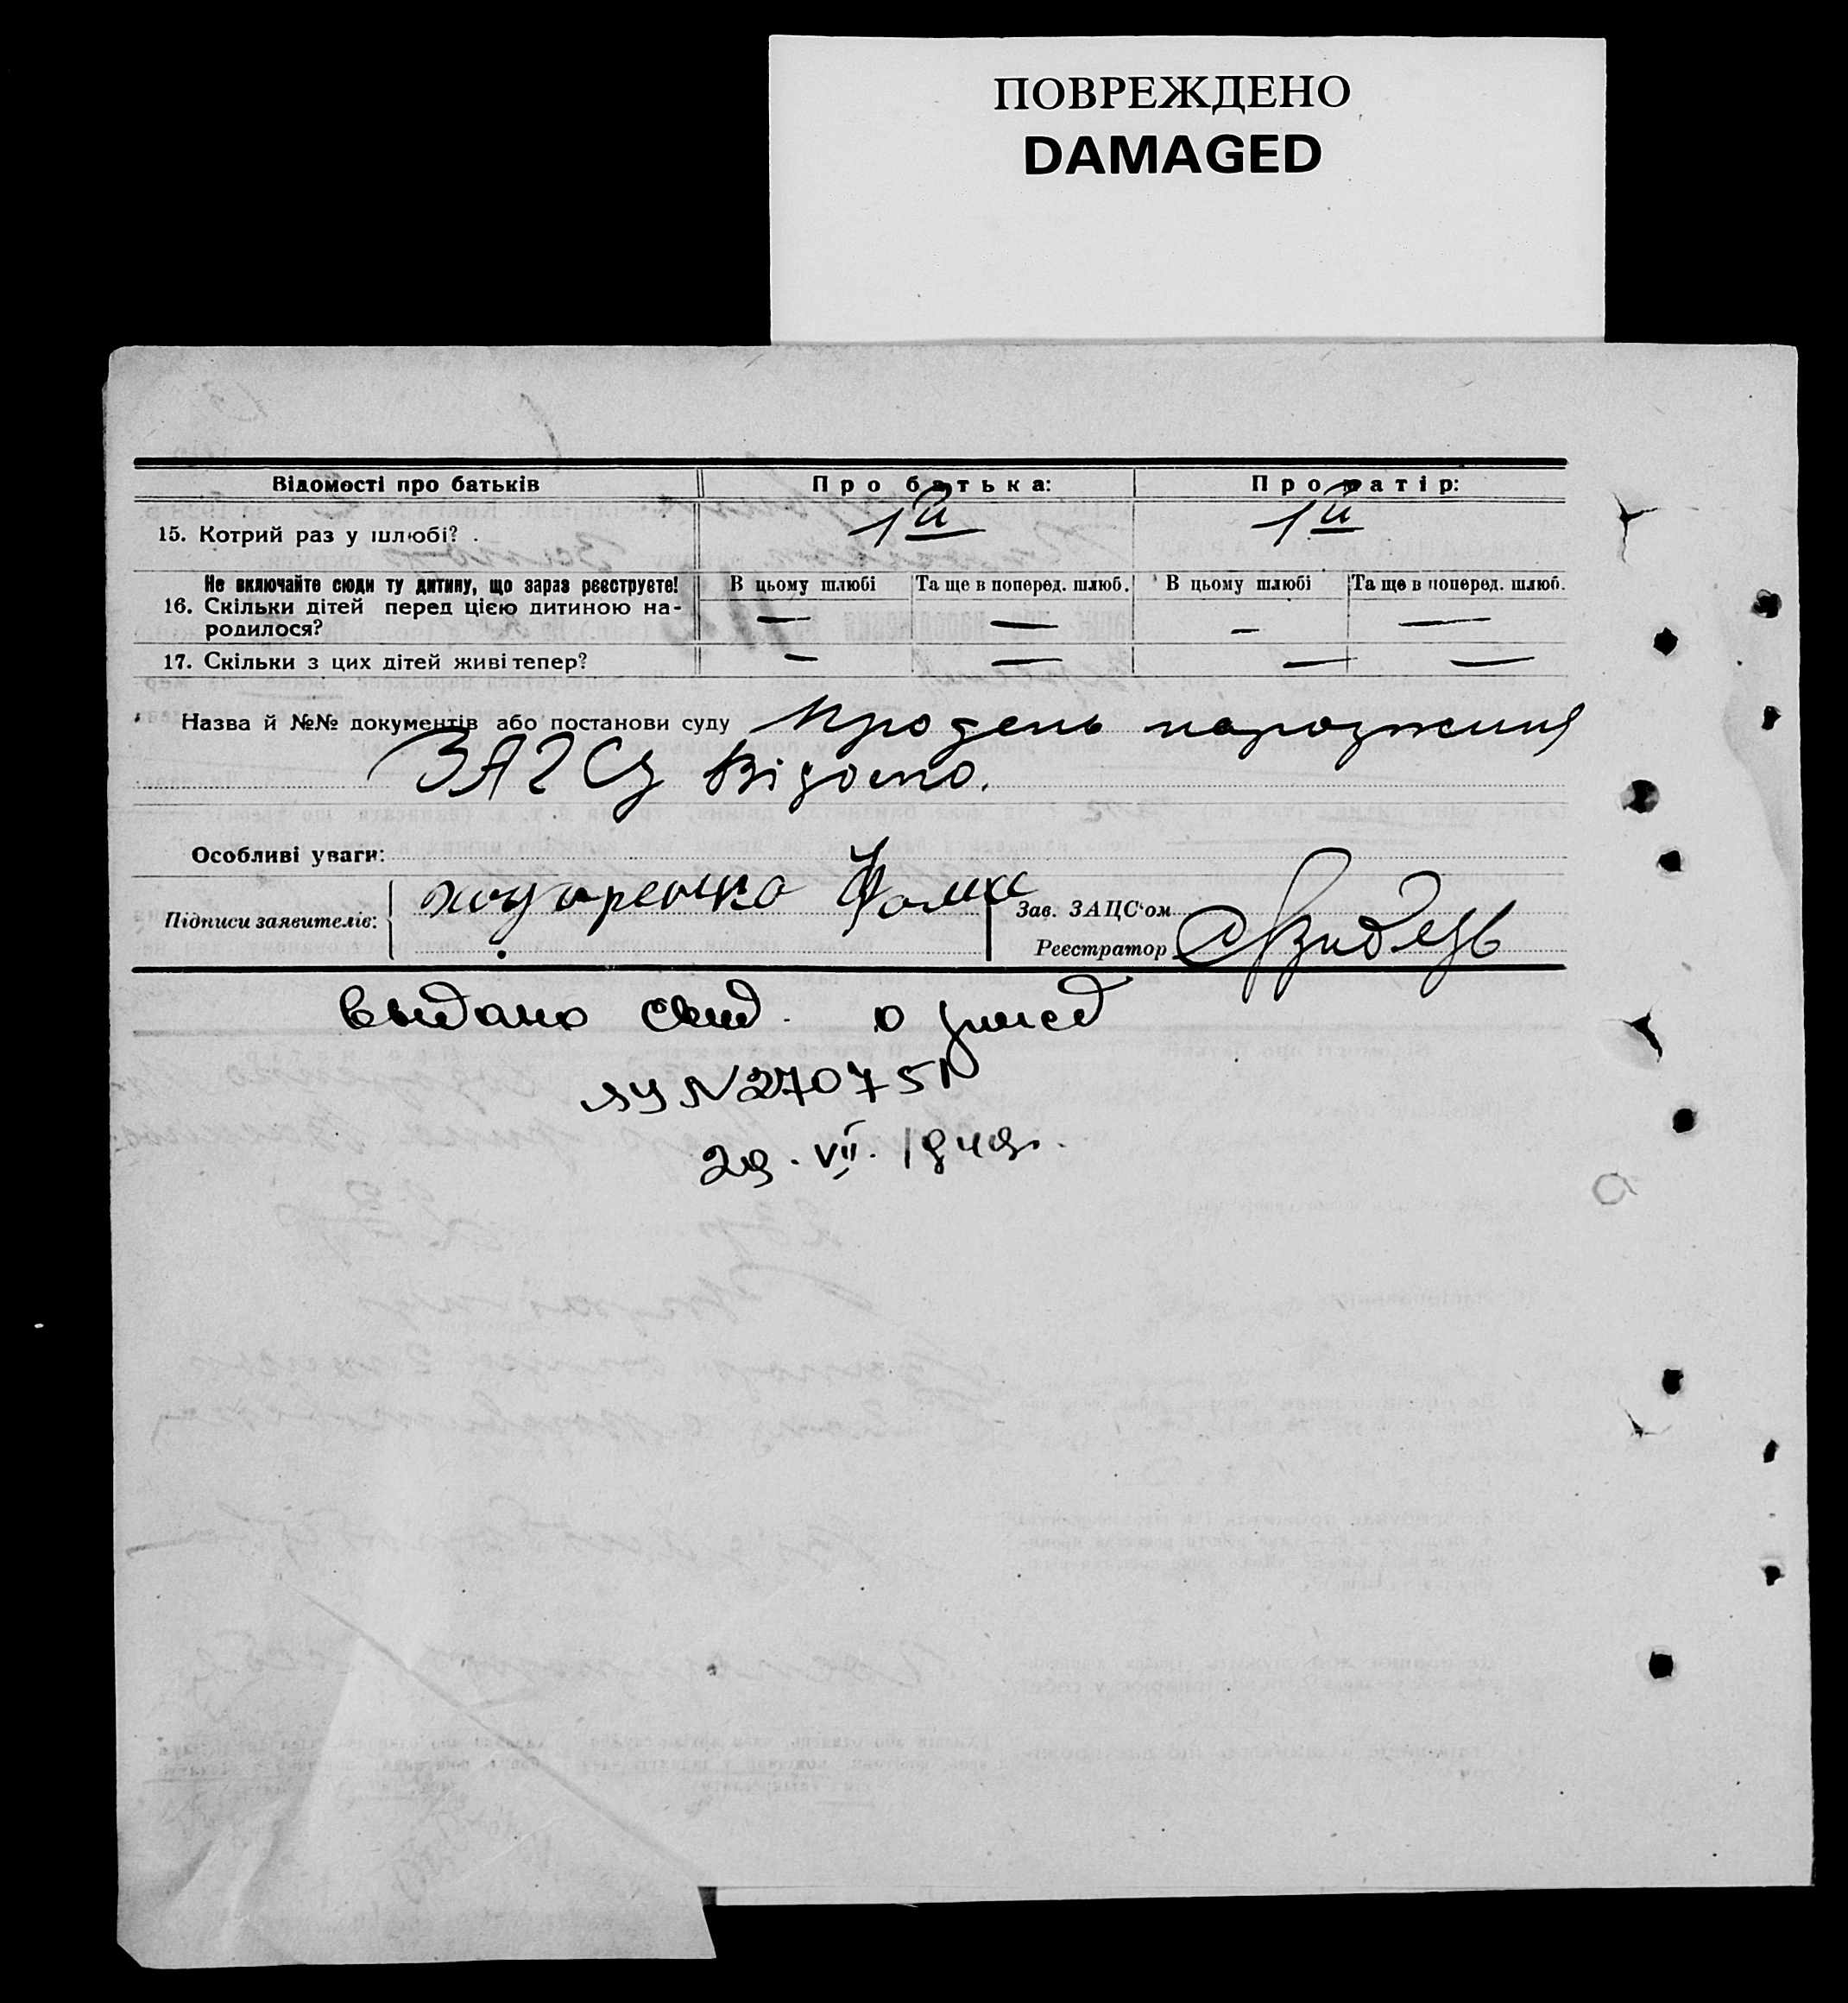 ПОВРЕЖДЕНО
DAMAGED
Відомості про батьків Про батька: Про матір:
15. Котрий раз у шлюбі? . 1й 1й
Не включайте сюди ту дитину, що зараз реєструєте! В цьому шлюбі Та ще в поперед. шлюб. В цьому шлюбі Та ще в поперед. шлюб.
16. Скільки дітей перед цією дитиною на-
родилося? — — — —
17. Скільки з цих дітей живі тепер? — — — —
Назва й №№ документів або постанови суду Про день народження
ЗАГСу відомо.
Особливі уваги:
Підписи заявителів:
Зав. ЗАЦС'ом
Реєстратор
Выдано свид. о
ЯУ N 27075
29. VII. 1949г.